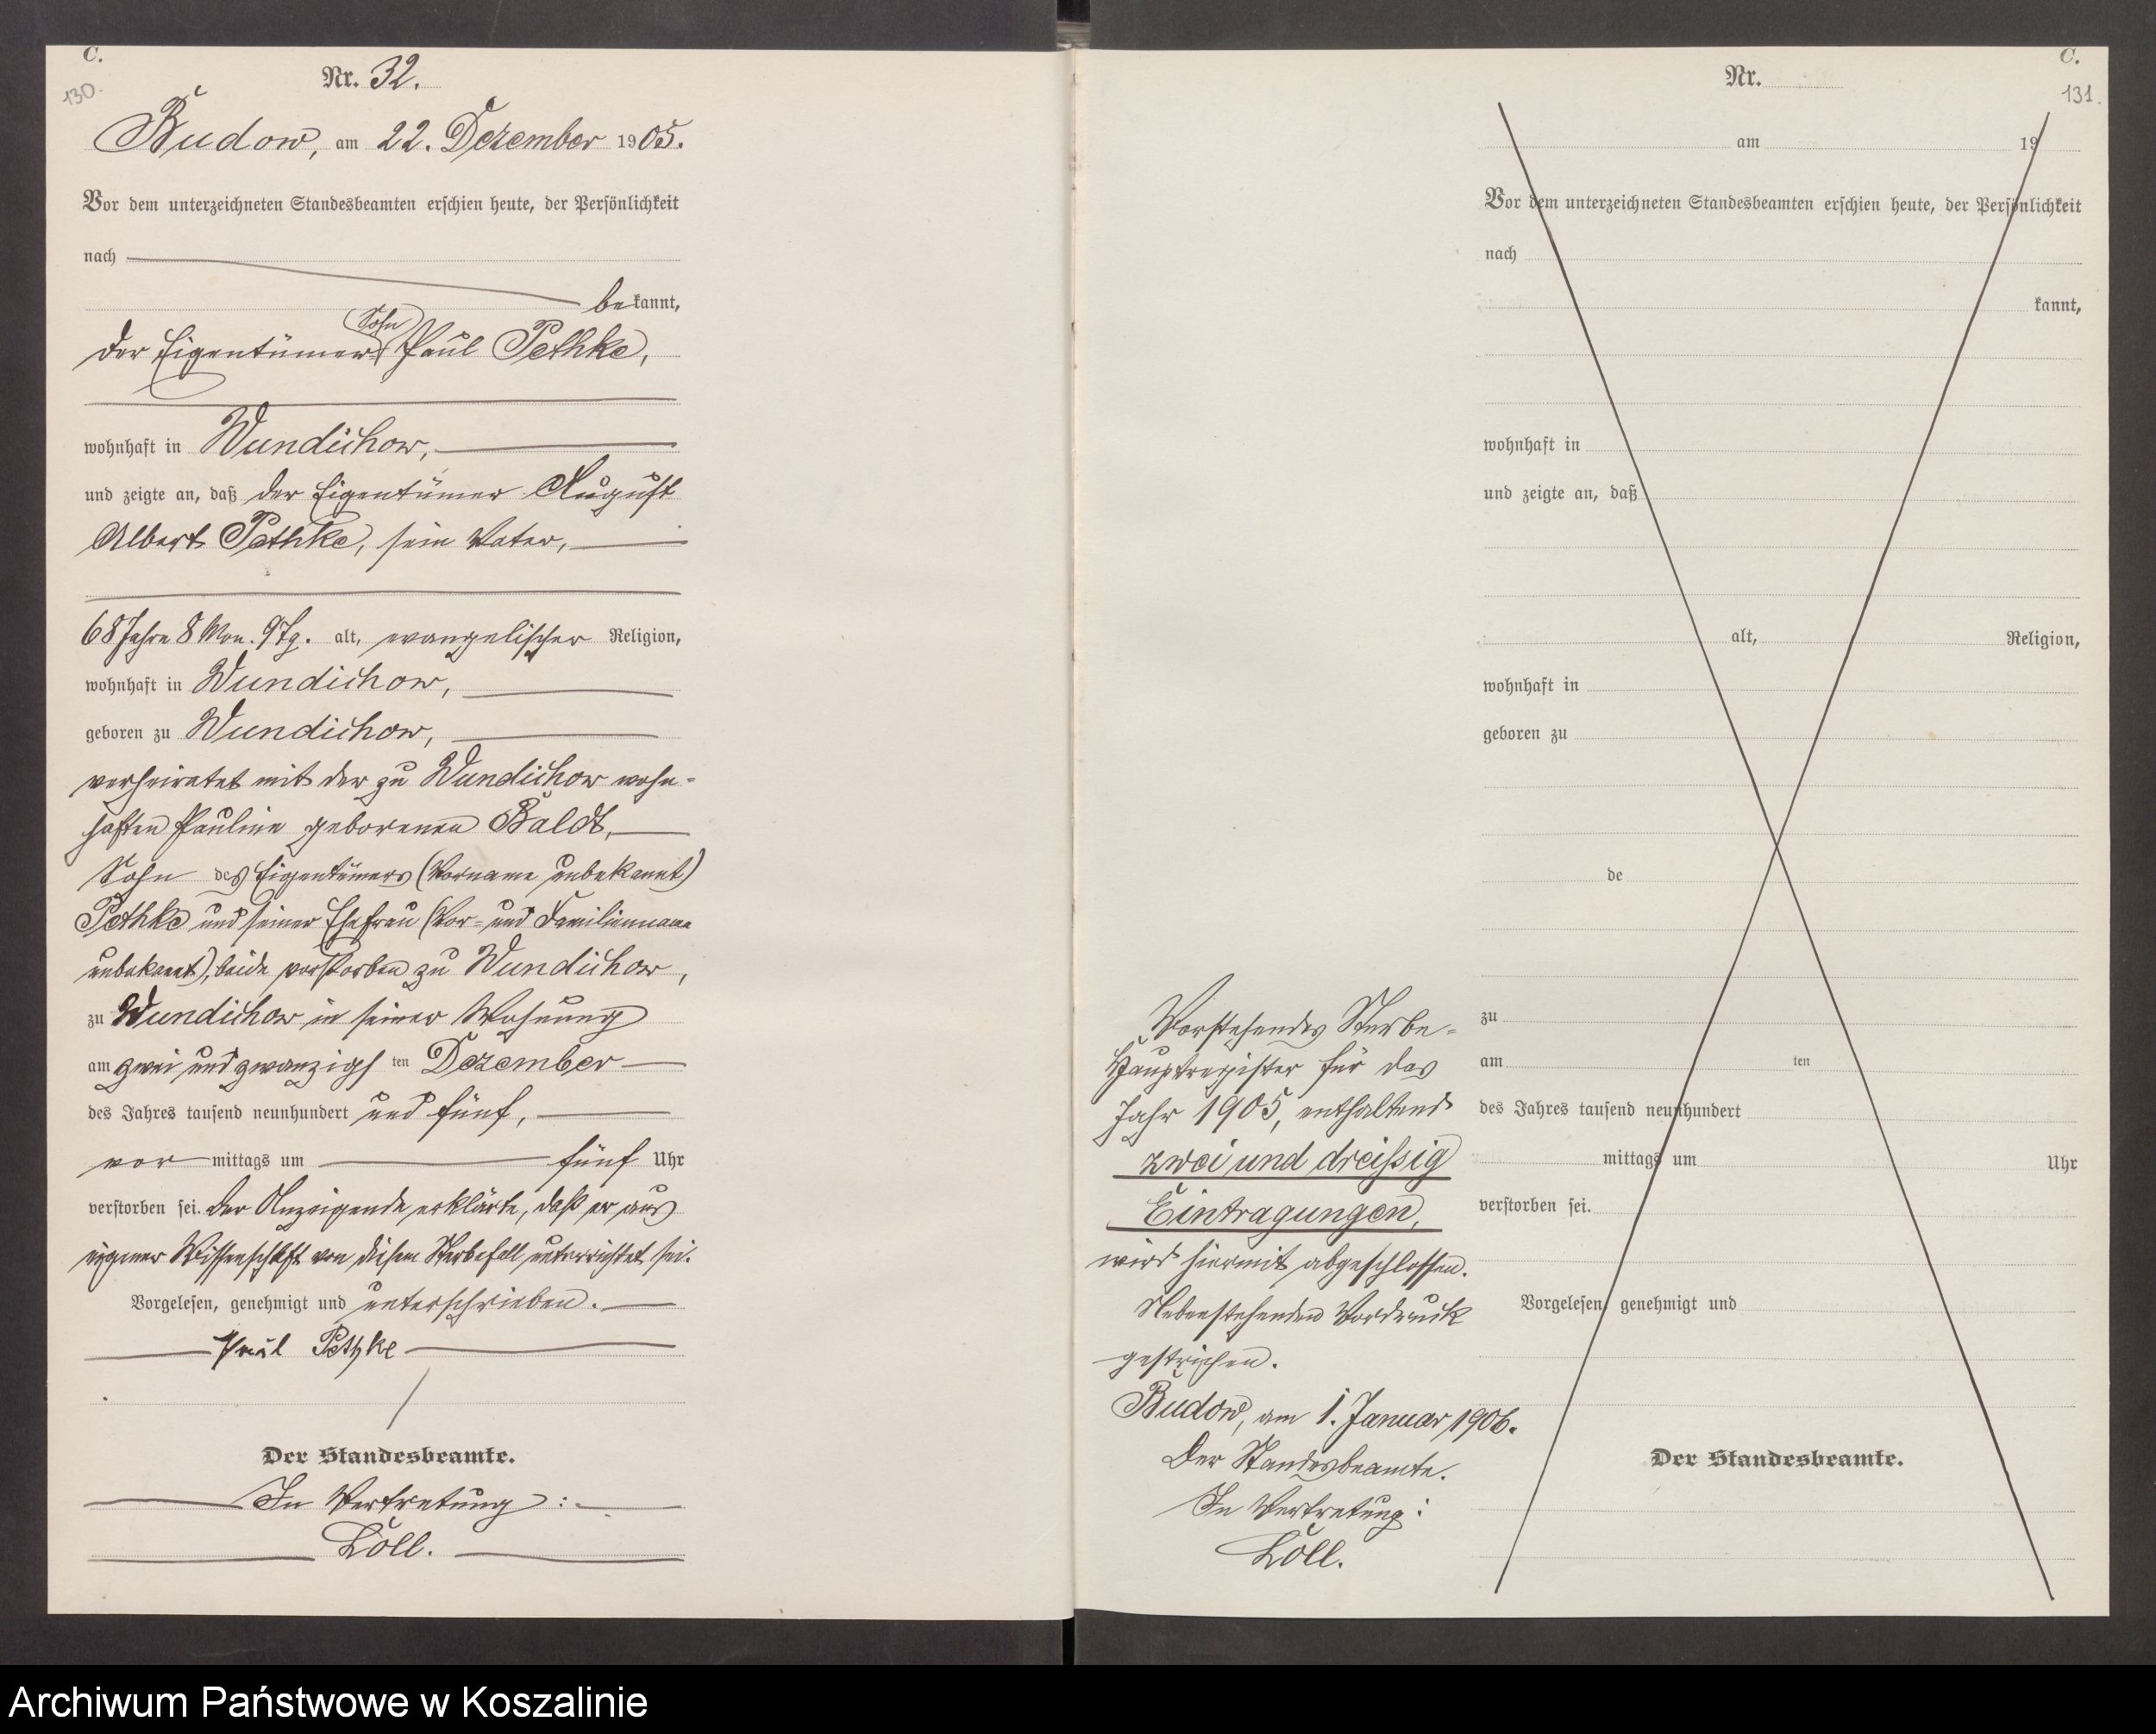 C.
130.
Nr. 32.
Budow, am 22. Dezember 1905.
Vor dem unterzeichneten Standesbeamten erschien heute, der Persönlichkeit
nach
bekannt,
Sohn
der Eigentümer Paul Pethke,
wohnhaft in Wundichow,
und zeigte an, daß der Eigentümer August
Albert Pethke, sein Vater,
68 Jahre 8 Mon. 9 Tg. alt, evangelischer Religion,
wohnhaft in Wundichow,
geboren zu Wundichow,
verheiratet mit der zu Wundichow wohn-
haften Pauline geborenen Baldt,
Sohn des Eigentümers (Vorname unbekannt)
Pethke und seiner Ehefrau (Vor- und Familienname
unbekannt), beide verstorben zu Wundichow,
zu Wundichow in seiner Wohnung
am zwei und zwanzigsten Dezember
des Jahres tausend neunhundert und fünf,
vormittags um fünf Uhr
verstorben sei. Der Anzeigende erklärte, daß er aus
eigener Wissenschaft von diesem Sterbefall unterrichtet sei.
Vorgelesen, genehmigt und unterschrieben.
Paul Pethke
Der Standesbeamte.
In Vertretung:
Löll.
C.
131.
Nr.
am 19
Vor dem unterzeichneten Standesbeamten erschien heute, der Persönlichkeit
nach
kannt,
wohnhaft in
und zeigte an, daß
alt, Religion,
wohnhaft in
geboren zu
de
zu
am ten
des Jahres tausend neunhundert
mittags um Uhr
verstorben sei.
Vorgelesen, genehmigt und
Der Standesbeamte.
Vorstehendes Sterbe-
Hauptregister für das
Jahr 1905, enthaltend
zwei und dreißig
Eintragungen,
wird hiermit abgeschlossen.
Nebenstehenden Vordruck
gestrichen.
Budow, am 1. Januar 1906.
Der Standesbeamte.
In Vertretung:
Löll.
Archiwum Państwowe w Koszalinie